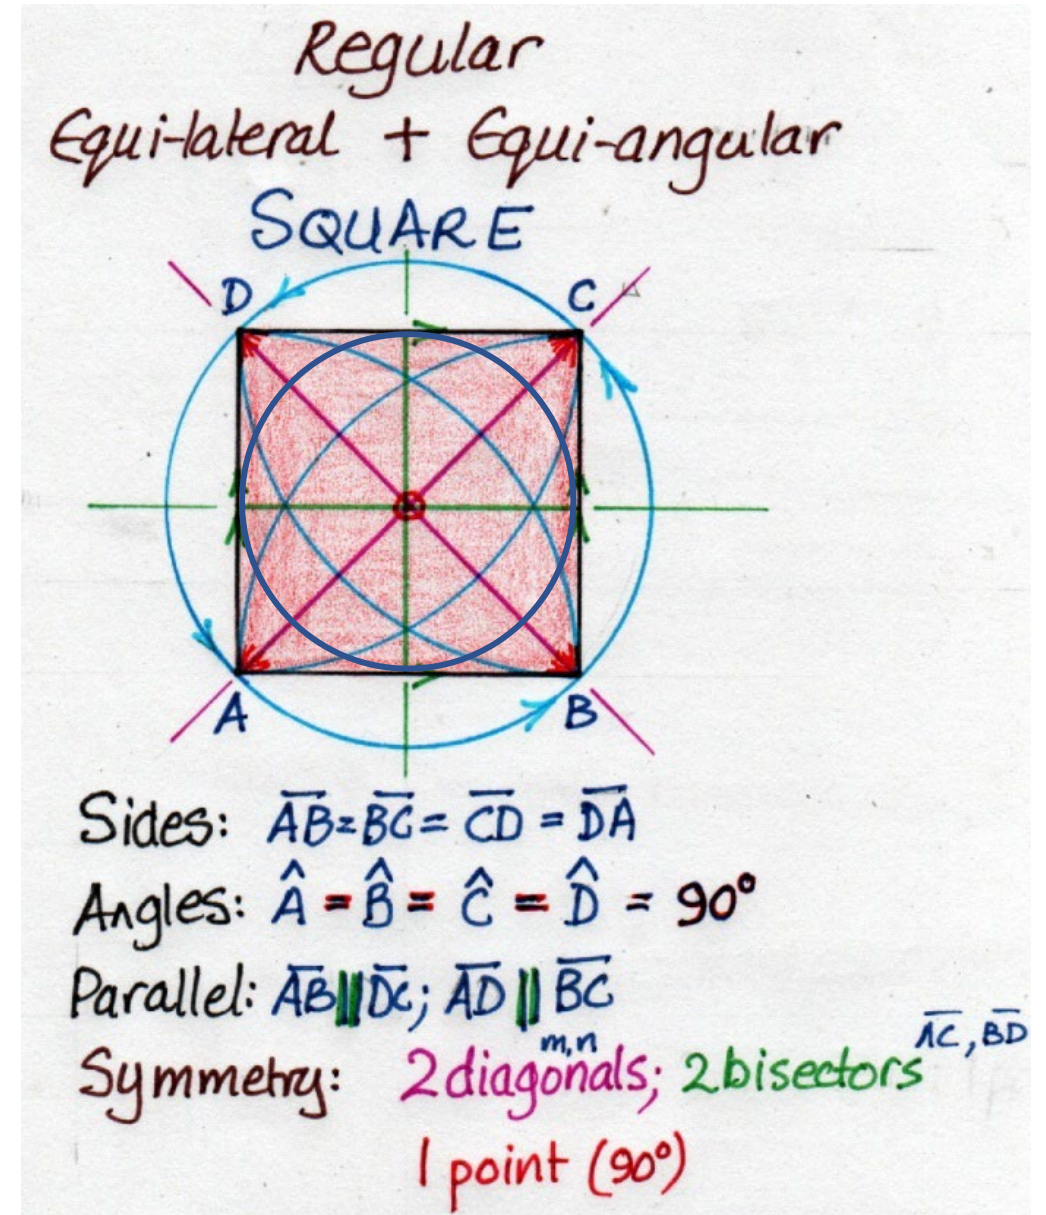 Regular
Equi-lateral + Equi-angular
SQUARE
D C
A B
Sides: A̅B̅=B̅C̅ = C̅D̅ = D̅A̅
Angles: Â = B̂ = Ĉ = D̂ = 90°
Parallel: A̅B̅||D̅C̅; A̅D̅ || B̅C̅
m,n A̅C̅, B̅D̅
Symmetry: 2 diagonals; 2 bisectors
1 point (90°)